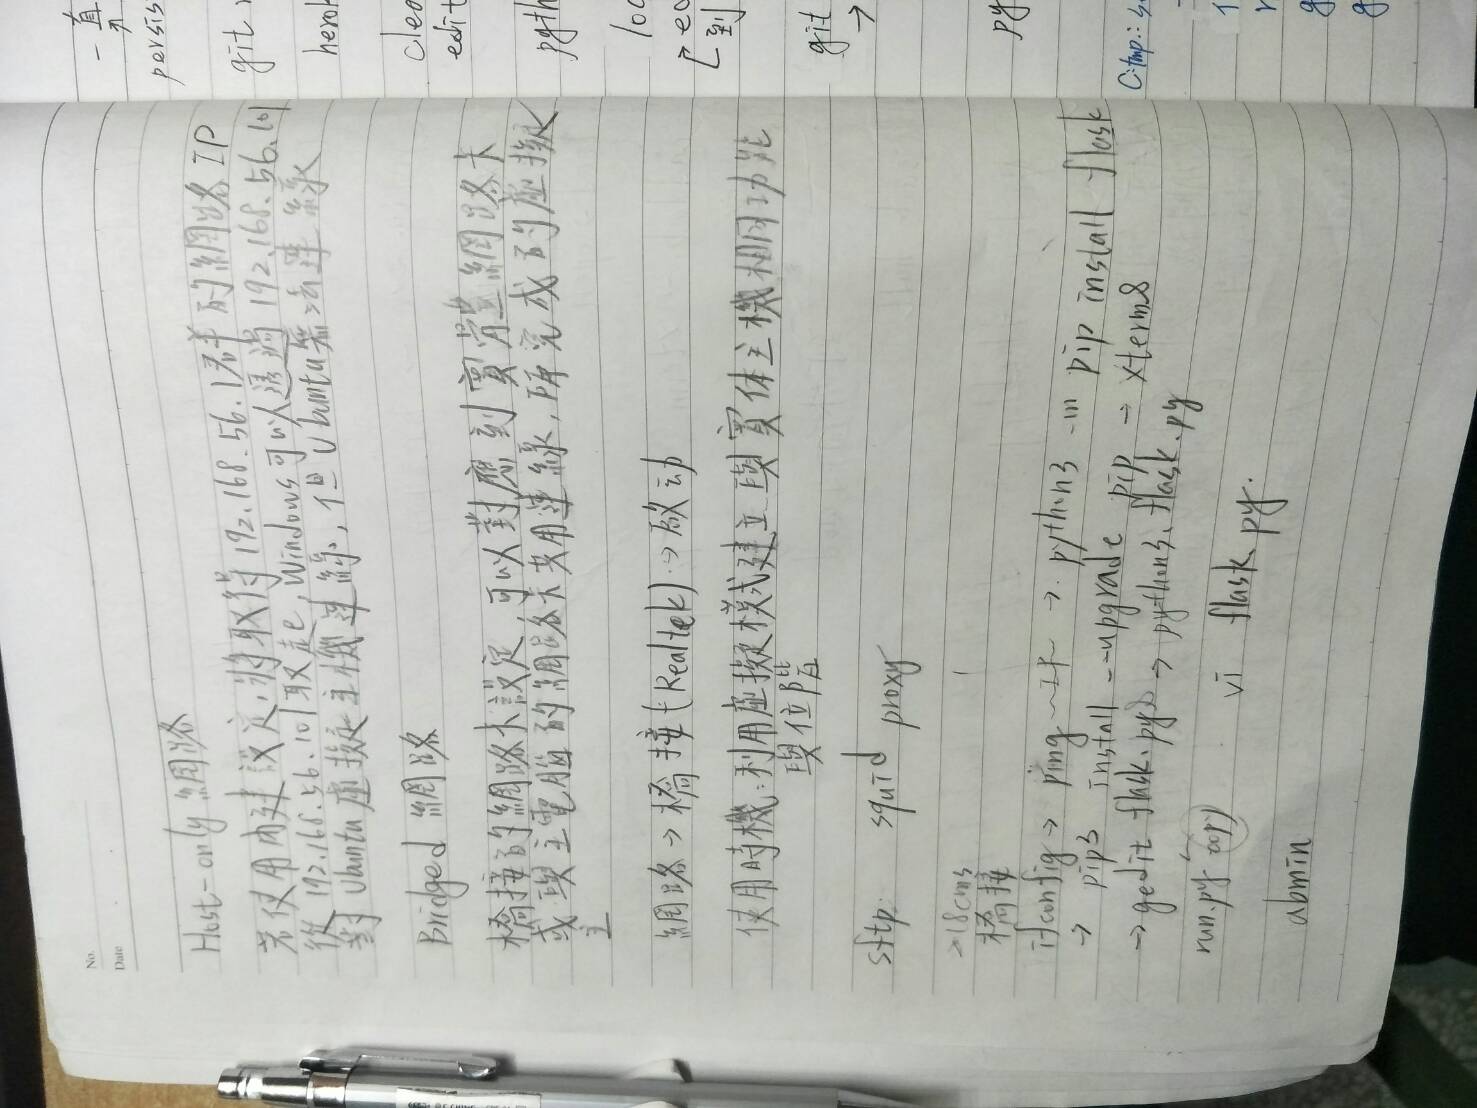 No.
Date
Host-only 網路
若使用內建設定,將取得192.168.56.1若的網路IP
從192.168.56.101取走, Windows可以透過192.168.56.101
對Ubuntu虛擬主機連線, 但Ubuntu無法連線
Bridged 網路
橋接的網路卡設定可以對應到實體網路卡
或與主電腦的網路卡共用連線,所完成的虛擬
主
網路→橋接(Realtek)→啟动
使用時機:利用虛擬模式建立與實体主機相同功能
與位階
sftp squid proxy
橋接
ifconfig → ping → python3 -m pip install flask
→ pip3 install --upgrade pip → xterm&
→ gedit flask.py& → python3 flask.py
run.py copy vi flask.py.
abmin
一直
persis
git
hero
clea
edit
pyth
loc
到
git
→
py